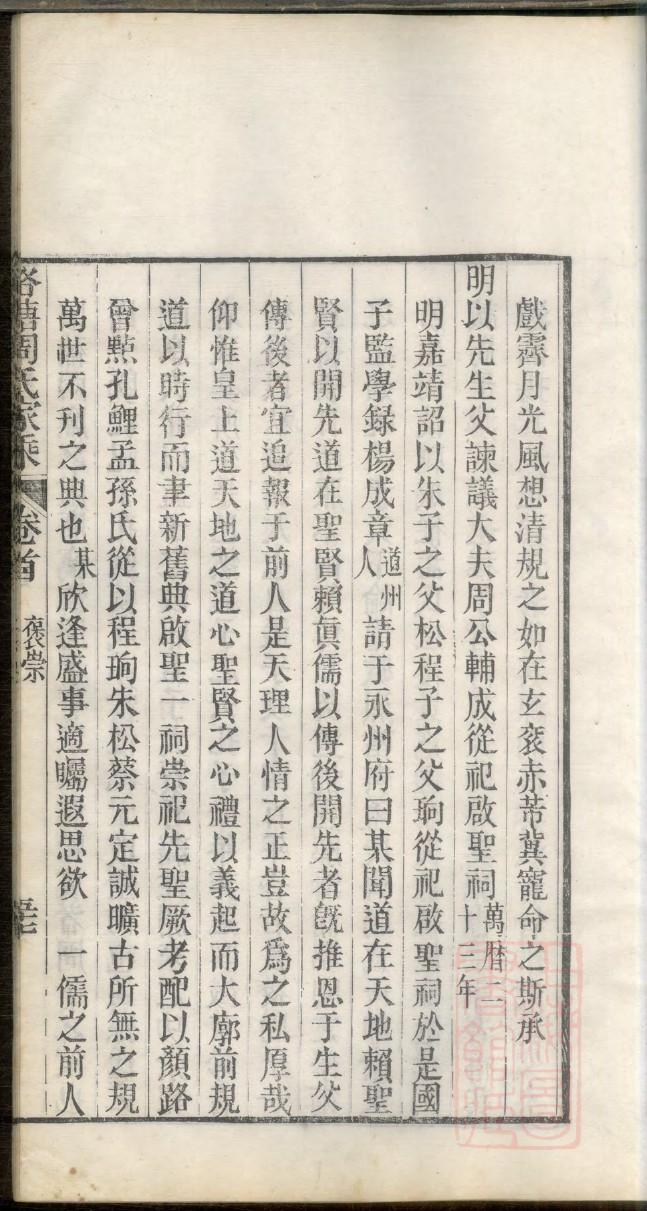 戲霽月光風想清規之如在玄衮赤芾冀寵命之斯承
明以先生父諫議大夫周公輔成從祀啟聖祠萬曆二十三年
明嘉靖詔以朱子之父松程子之父珦從祀啟聖祠於是國
子監學録楊成章道州人請于永州府曰某聞道在天地賴聖
賢以開先道在聖賢賴眞儒以傳後開先者旣推恩于生父
傳後者宜追報于前人是天理人情之正豈故爲之私厚哉
仰惟皇上道天地之道心聖賢之心禮以義起而大廓前規
道以時行而聿新舊典啟聖一祠崇祀先聖厥考配以顏路
曾點孔鯉孟孫氏從以程珦朱松蔡元定誠曠古所無之規
萬世不刋之典也某欣逢盛事適矚遐思欲一儒之前人
周氏家乘 卷首 褒崇